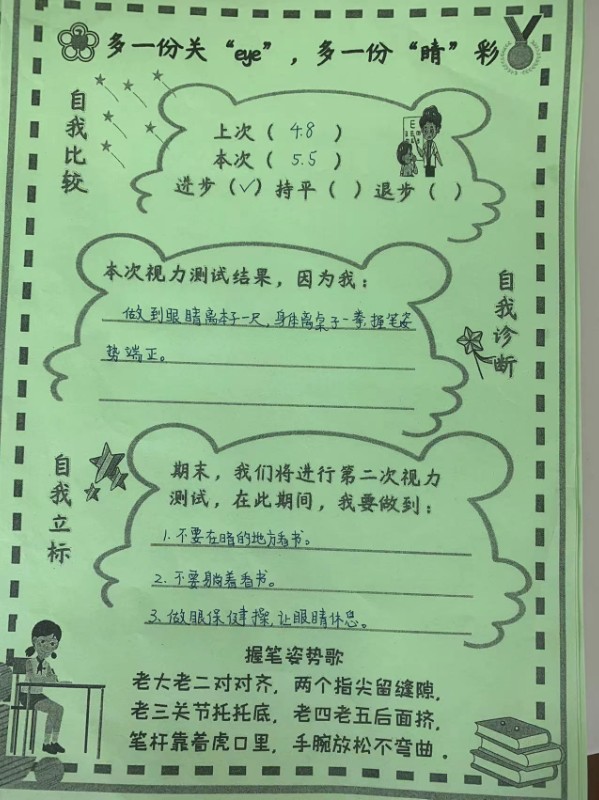 多一份关“eye”，多一份“睛”彩
自我比较
上次（ 4.8 ）
本次（ 5.5 ）
进步（✓）持平（ ）退步（ ）
本次视力测试结果，因为我：
做到眼睛离本子一尺，身体离桌子一拳，握笔姿
势端正。
自我诊断
自我立标
期末，我们将进行第二次视力
测试，在此期间，我要做到：
1. 不要在暗的地方看书。
2. 不要躺着看书。
3. 做眼保健操，让眼睛休息。
握笔姿势歌
老大老二对对齐，两个指尖留缝隙，
老三关节托托底，老四老五后面挤，
笔杆靠着虎口里，手腕放松不弯曲．